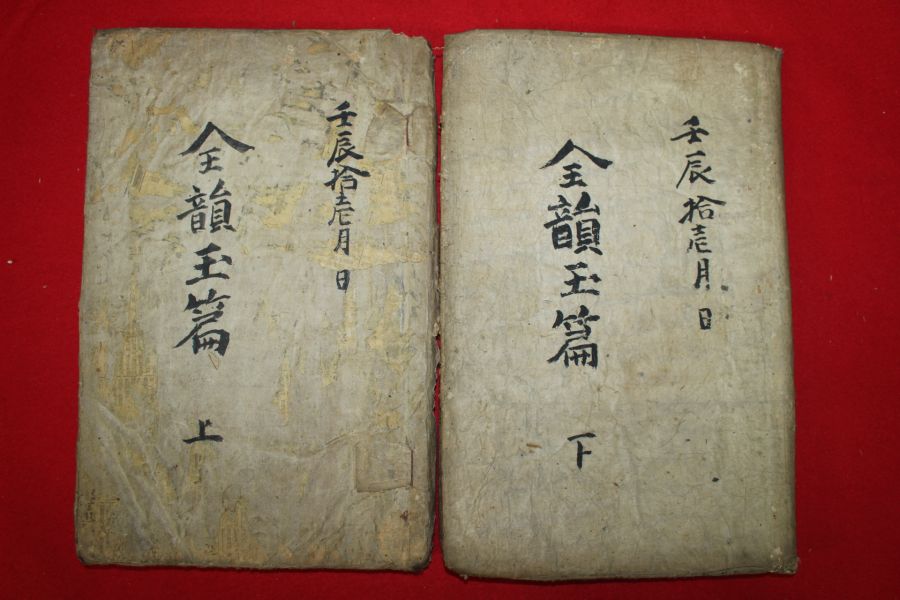 壬辰拾壱月 日
全韻玉篇 上
壬辰拾壱月 日
全韻玉篇 下